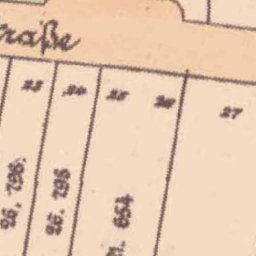 raße
23 24 25 26 27
26. 796.
26. 795
n. 654